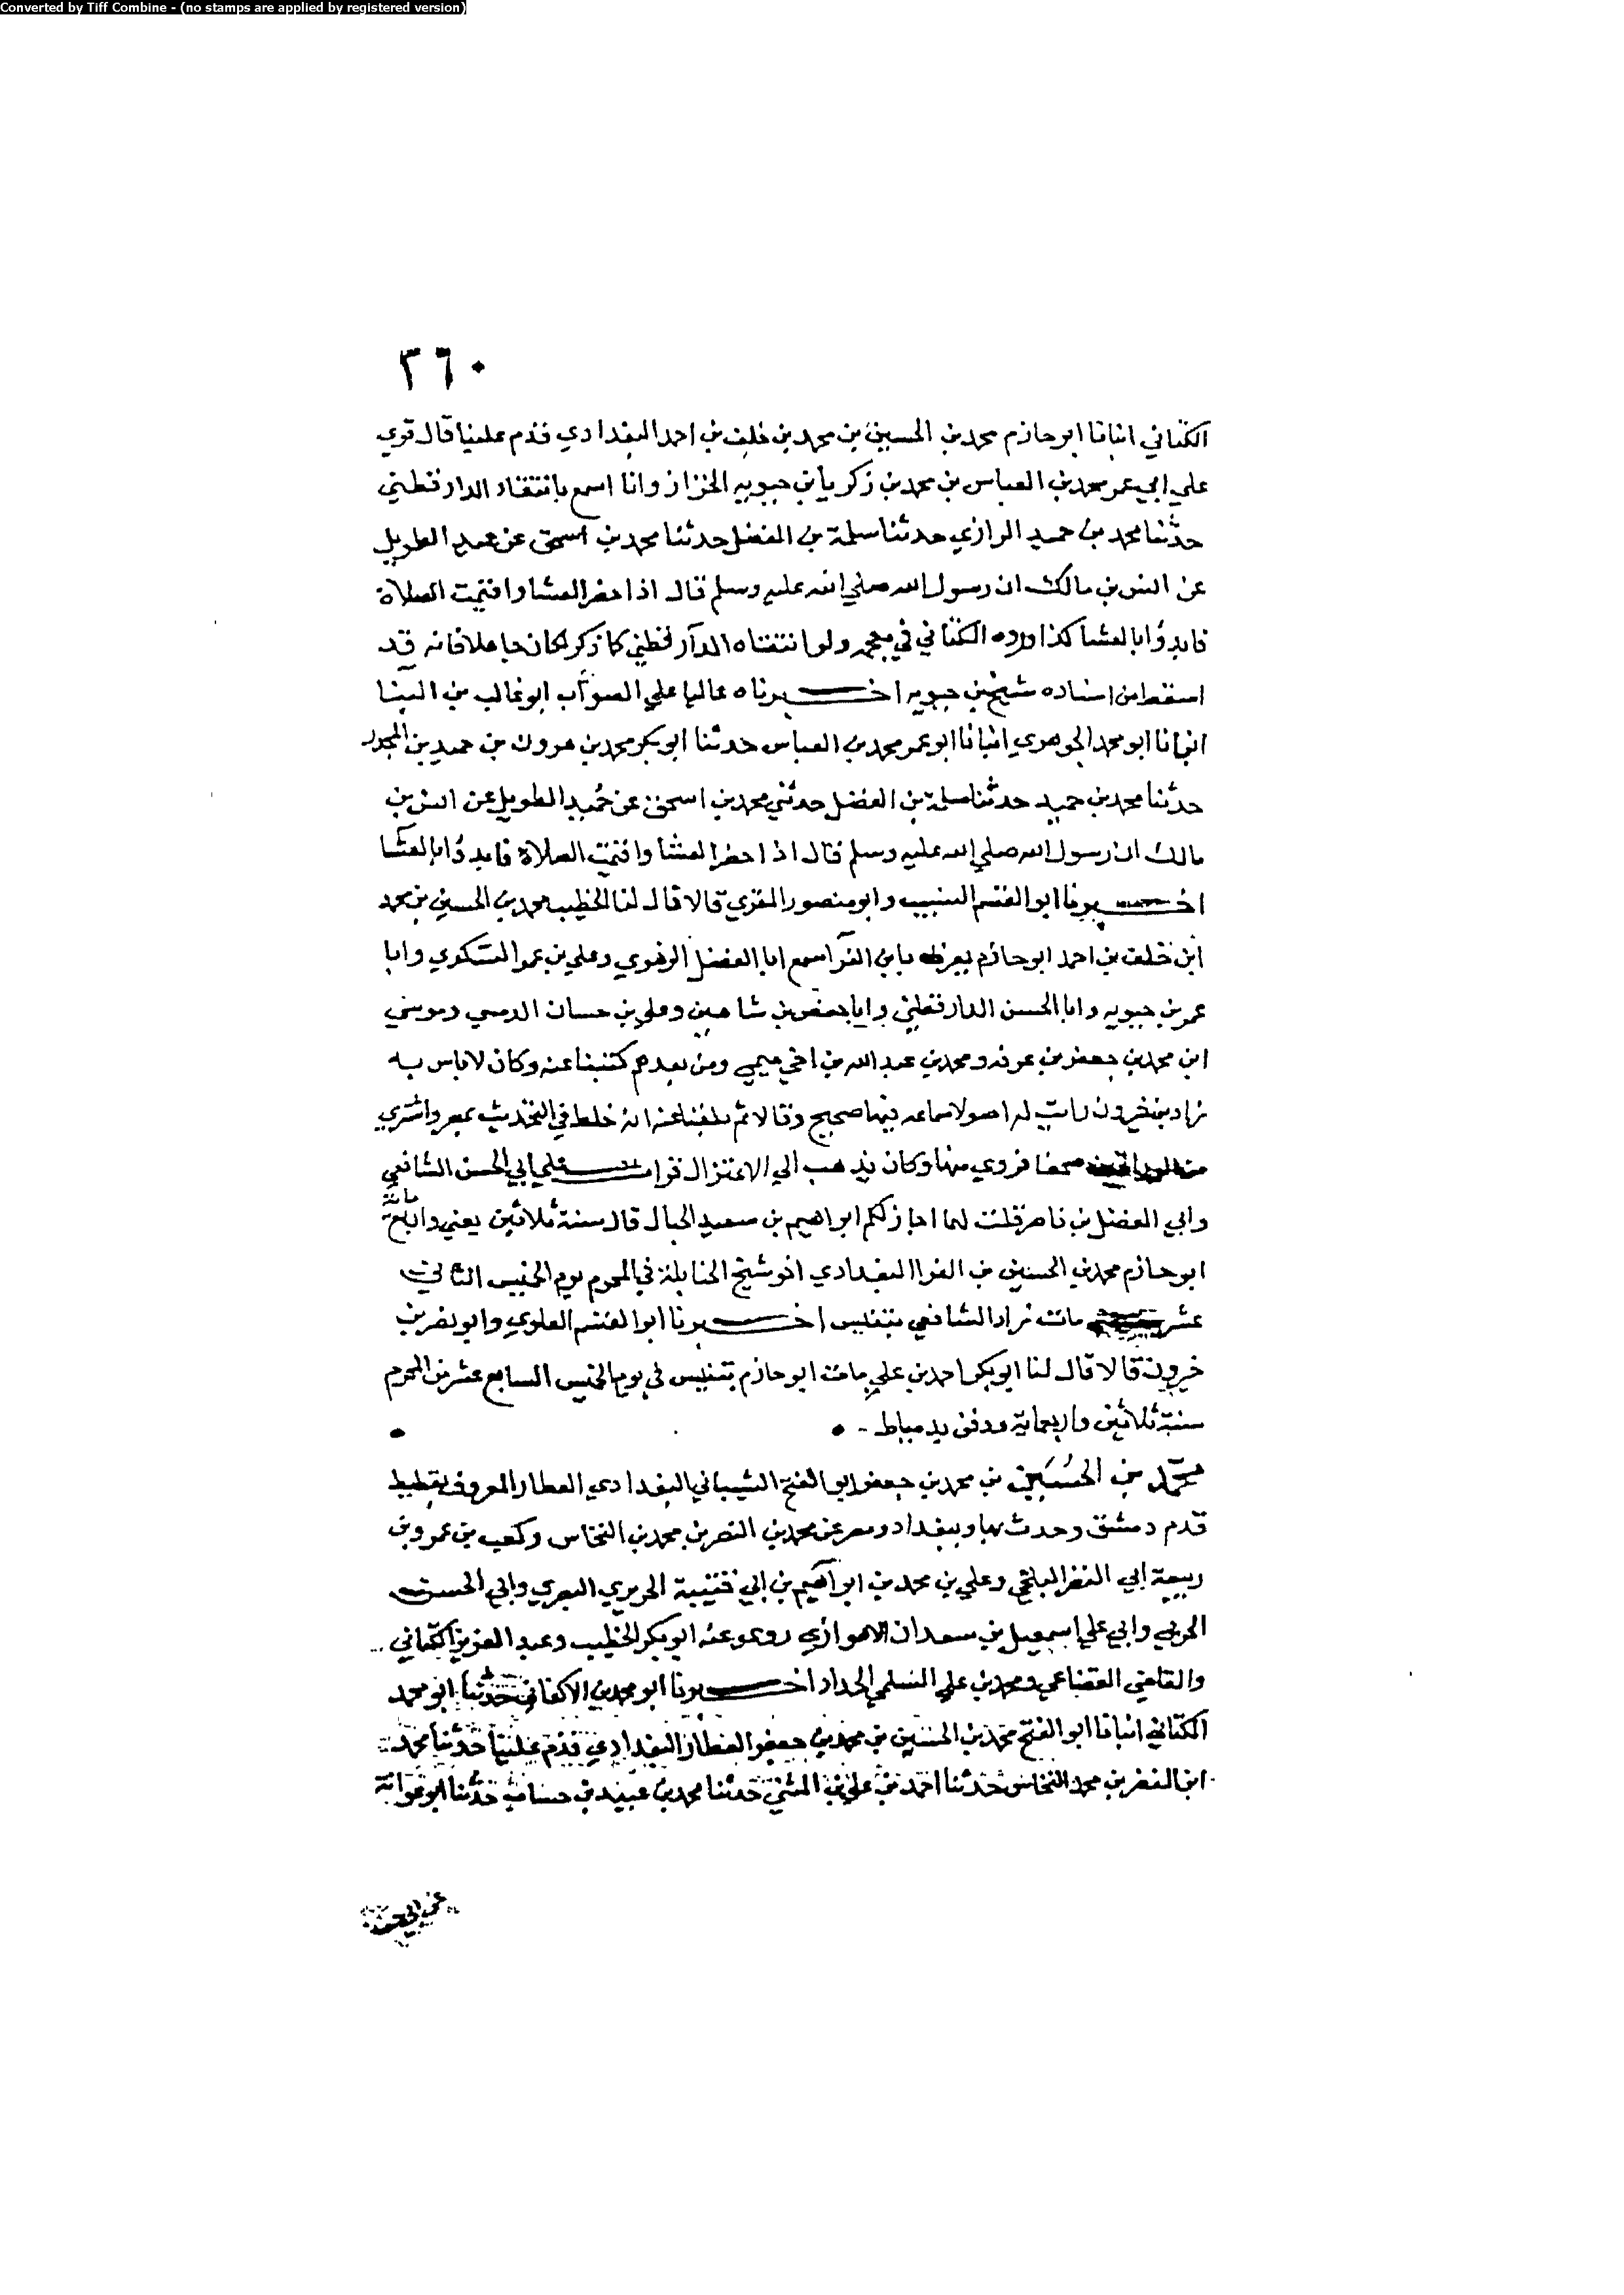 Converted by Tiff Combine - (no stamps are applied by registered version)
٢٦٠
الكتاني انبانا ابو حازم محمد بن الحسين بن محمد بن خلف بن احمد البغدادي قدم علينا قال قري
علي ابي عمر محمد بن العباس بن محمد بن زكريا بن حيويه الخزاز وانا اسمع بانتقاء الدارقطني
حدثنا محمد بن حميد الرازي حدثنا سلمة بن الفضل حدثنا محمد بن اسحق عن حميد الطويل
عن انس بن مالك ان رسول الله صلي الله عليه وسلم قال اذا حضر العشا واقيمت الصلاة
فابدؤا بالعشا كذا اورده الكتاني في معجمه ولو انتقاه الدارقطني كما ذكر لكان جاهلا فانه قد
اسقط من اسناده شيخ بن حيويه اخبرناه عاليا علي الصواب ابو غالب بن البنا
انبانا ابو محمد الجوهري انبانا ابو عمر محمد بن العباس حدثنا ابو بكر محمد بن هرون بن حميد بن المجدر
حدثنا محمد بن حميد حدثنا سلمة بن الفضل حدثني محمد بن اسحق عن حُميد الطويل عن انس بن
مالك ان رسول الله صلي الله عليه وسلم قال اذا حضر العشا واقيمت الصلاة فابدؤا بالعشا
اخبرنا ابو القسم النسيب وابو منصور المقري قالا قال لنا الخطيب محمد بن الحسين بن محمد
ابن خلف بن احمد ابو حازم يعرف بابن الفرا سمع ابا الفضل الزهري وعلي بن عمر السكري وابا
عمر بن حيويه وابا الحسن الدارقطني وابا حفص بن شاهين وعلي بن حسان الدممي وموسي
ابن محمد بن جعفر بن عرفه ومحمد بن عبد الله بن اخي ميمي ومن بعدهم كتبنا عنه وكان لا باس به
زاد بن خيرون رايت له اصولا سماعه فيها صحيح وقالا ثم بلغنا عنه انه خلط في التحديث بمصر واشتري
من الوراقين صحفا فروي منها وكان يذهب الي الاعتزال قرات علي ابي الحسن الشافعي
وابي الفضل بن ناصر قلت لهما اجاز لكم ابراهيم بن سعيد الحبال قال سنة ثلاثين يعني واربع مائة
ابو حازم محمد بن الحسين بن الفرا البغدادي اخو شيخ الحنابلة في المحرم يوم الخميس الثاني
عشر مات زاد الشافعي بتنيس اخبرنا ابو القسم العلوي وابو نصر بن
خيرون قالا قال لنا ابو بكر احمد بن علي مات ابو حازم بتنيس في يوم الخميس السابع عشر من المحرم
سنة ثلاثين واربعماية ودفن بدمياط
محمّد بن الحُسَين بن محمد بن جعفر ابو الفتح الشيباني البغدادي العطار المعروف بقطيط
قدم دمشق وحدث بها وببغداد ومصر عن محمد بن النضر بن محمد بن النخاس وكعب بن عمرو بن
ربيعة ابي النضر البلخي وعلي بن محمد بن ابراهيم بن ابي قتيبة الحريري البصري وابي الحسن
الحربي وابي علي اسمعيل بن سعدان الاهوازي روي عنه ابو بكر الخطيب وعبد العزيز الكتاني
والقاضي القضاعي ومحمد بن علي السلمي الحداد اخبرنا ابو محمد بن الاكفاني حدثنا ابو محمد
الكتاني انبانا ابو الفتح محمد بن الحسين بن محمد بن جعفر العطار البغدادي قدم علينا حدثنا محمد
ابن النضر بن محمد النخاس حدثنا احمد بن علي بن المثني حدثنا محمد بن عبيد بن حساب حدثنا ابو عوانة